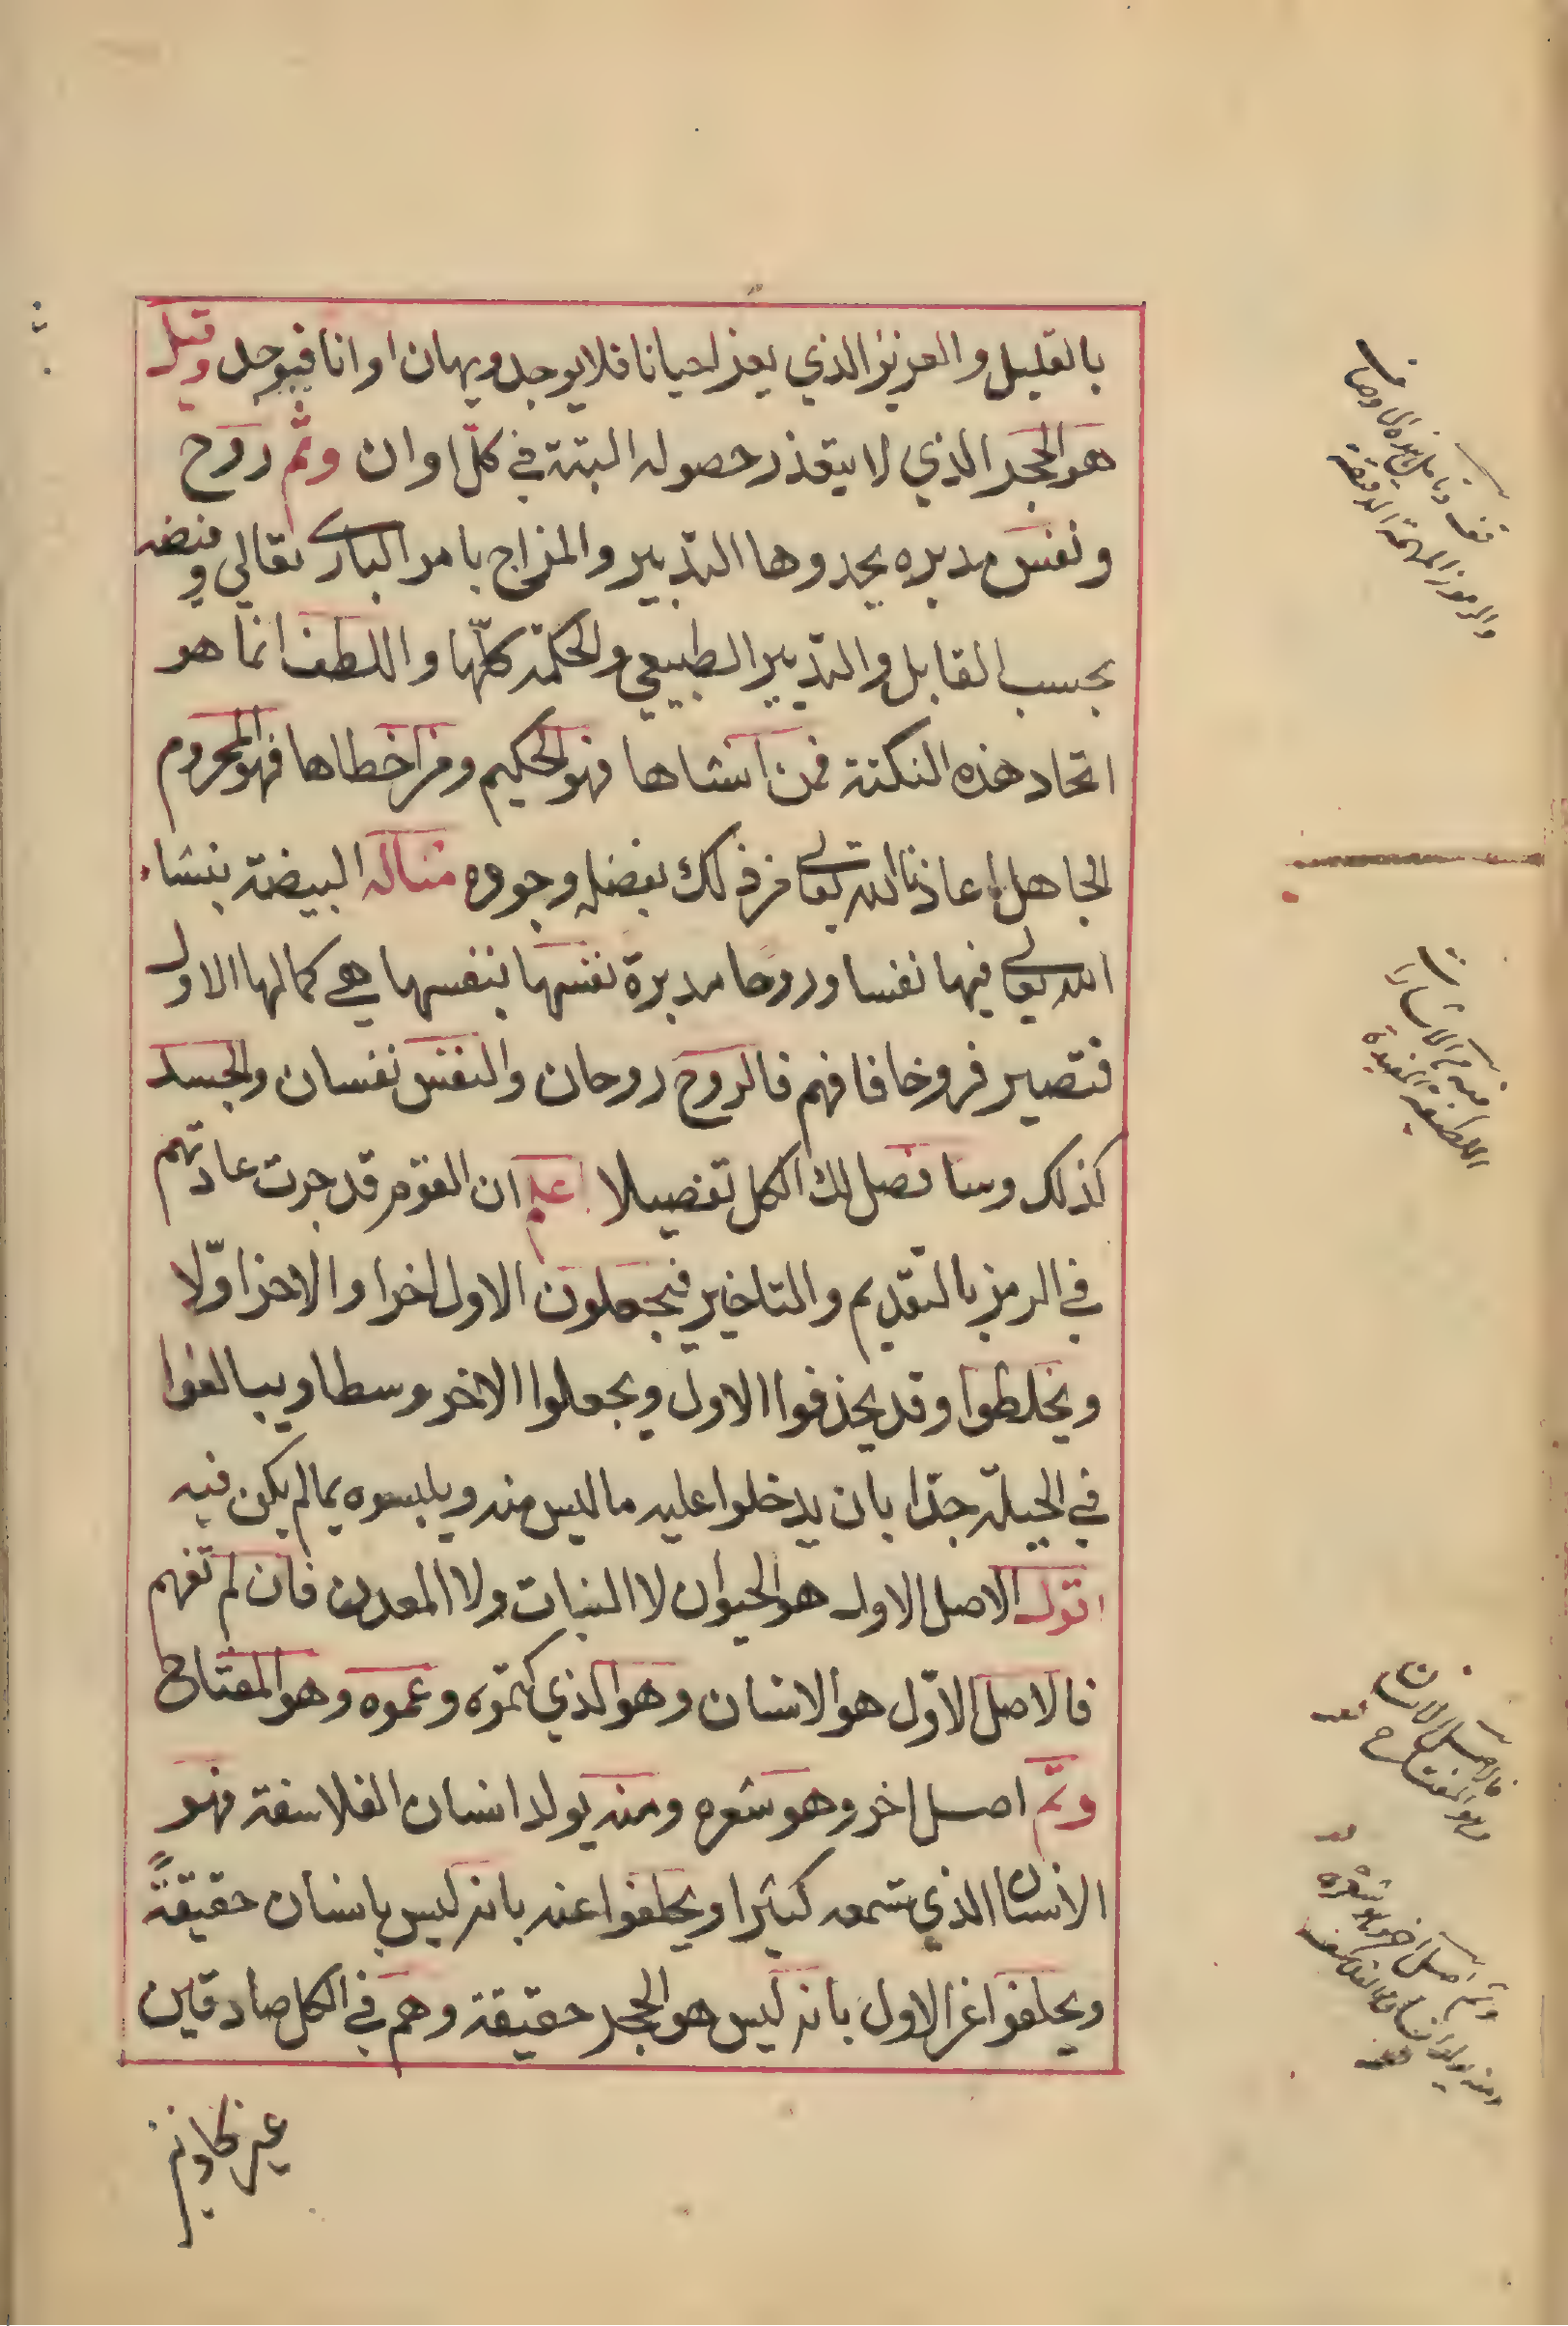 بالقليل والعزيز الذي يعز احيانا فلا يوجد ويهان اوانا فيوجد وقيل
هو الحجر الذي لا يتعذر حصوله البتة في كلّ اوان وثم روح
ونفس مدبره يحدوها التدبير والمزاج بامر الباري تعالي وفيضه
بحسب القابل والتدبير الطبيعي والحكمة كلّها واللطف انما هو
اتحاد هذه النكتة فمن انشاها فهو الحكيم ومن اخطاها فهو المحروم
الجاهل اعاذنا الله تعالى من ذلك بفضله وجوده مثاله البيضة ينشاء
الله تعالى فيها نفسا وروحا مدبرة نفسها بنفسها هي كمالها الاول
فتصير فروخا فافهم فالروح روحان والنفس نفسان والجسد
كذلك وسافصل لك الكل تفصيلا اعلم ان القوم قد جرت عادتهم
في الرمز بالتقديم والتاخير فيجعلون الاول اخرا والاخر اوّلا
ويخلطوا وقد يحذفوا الاول ويجعلوا الاخر وسطا ويبالغوا
في الحيلة جدّا بان يدخلوا عليه ما ليس منه ويلبسوه بما لم يكن فيه
اقول الاصل الاول هو الحيوان لا النبات ولا المعدن فان لم تفهم
فالاصل الاوّل هو الانسان وهو الذي كتموه وعموه وهو المفتاح
وثمّ اصل اخر وهو شعره ومنه يولد انسان الفلاسفة فهو
الانسان الذي تسمعه كثيرا ويحلفوا عنه بانه ليس بانسان حقيقةً
ويحلفوا عن الاول بانه ليس هو الحجر حقيقة وهم في الكل صادقين
غير كاذبين
قف وتامل هذه الاوصاف
والرموز المهمة الدقيقة
افهم الاشارات
اللطيفة المفيدة
فالاصل الانسان
وهو المفتاح
وثم اصل اخر وهو شعره
ومنه يولد انسان الفلاسفة